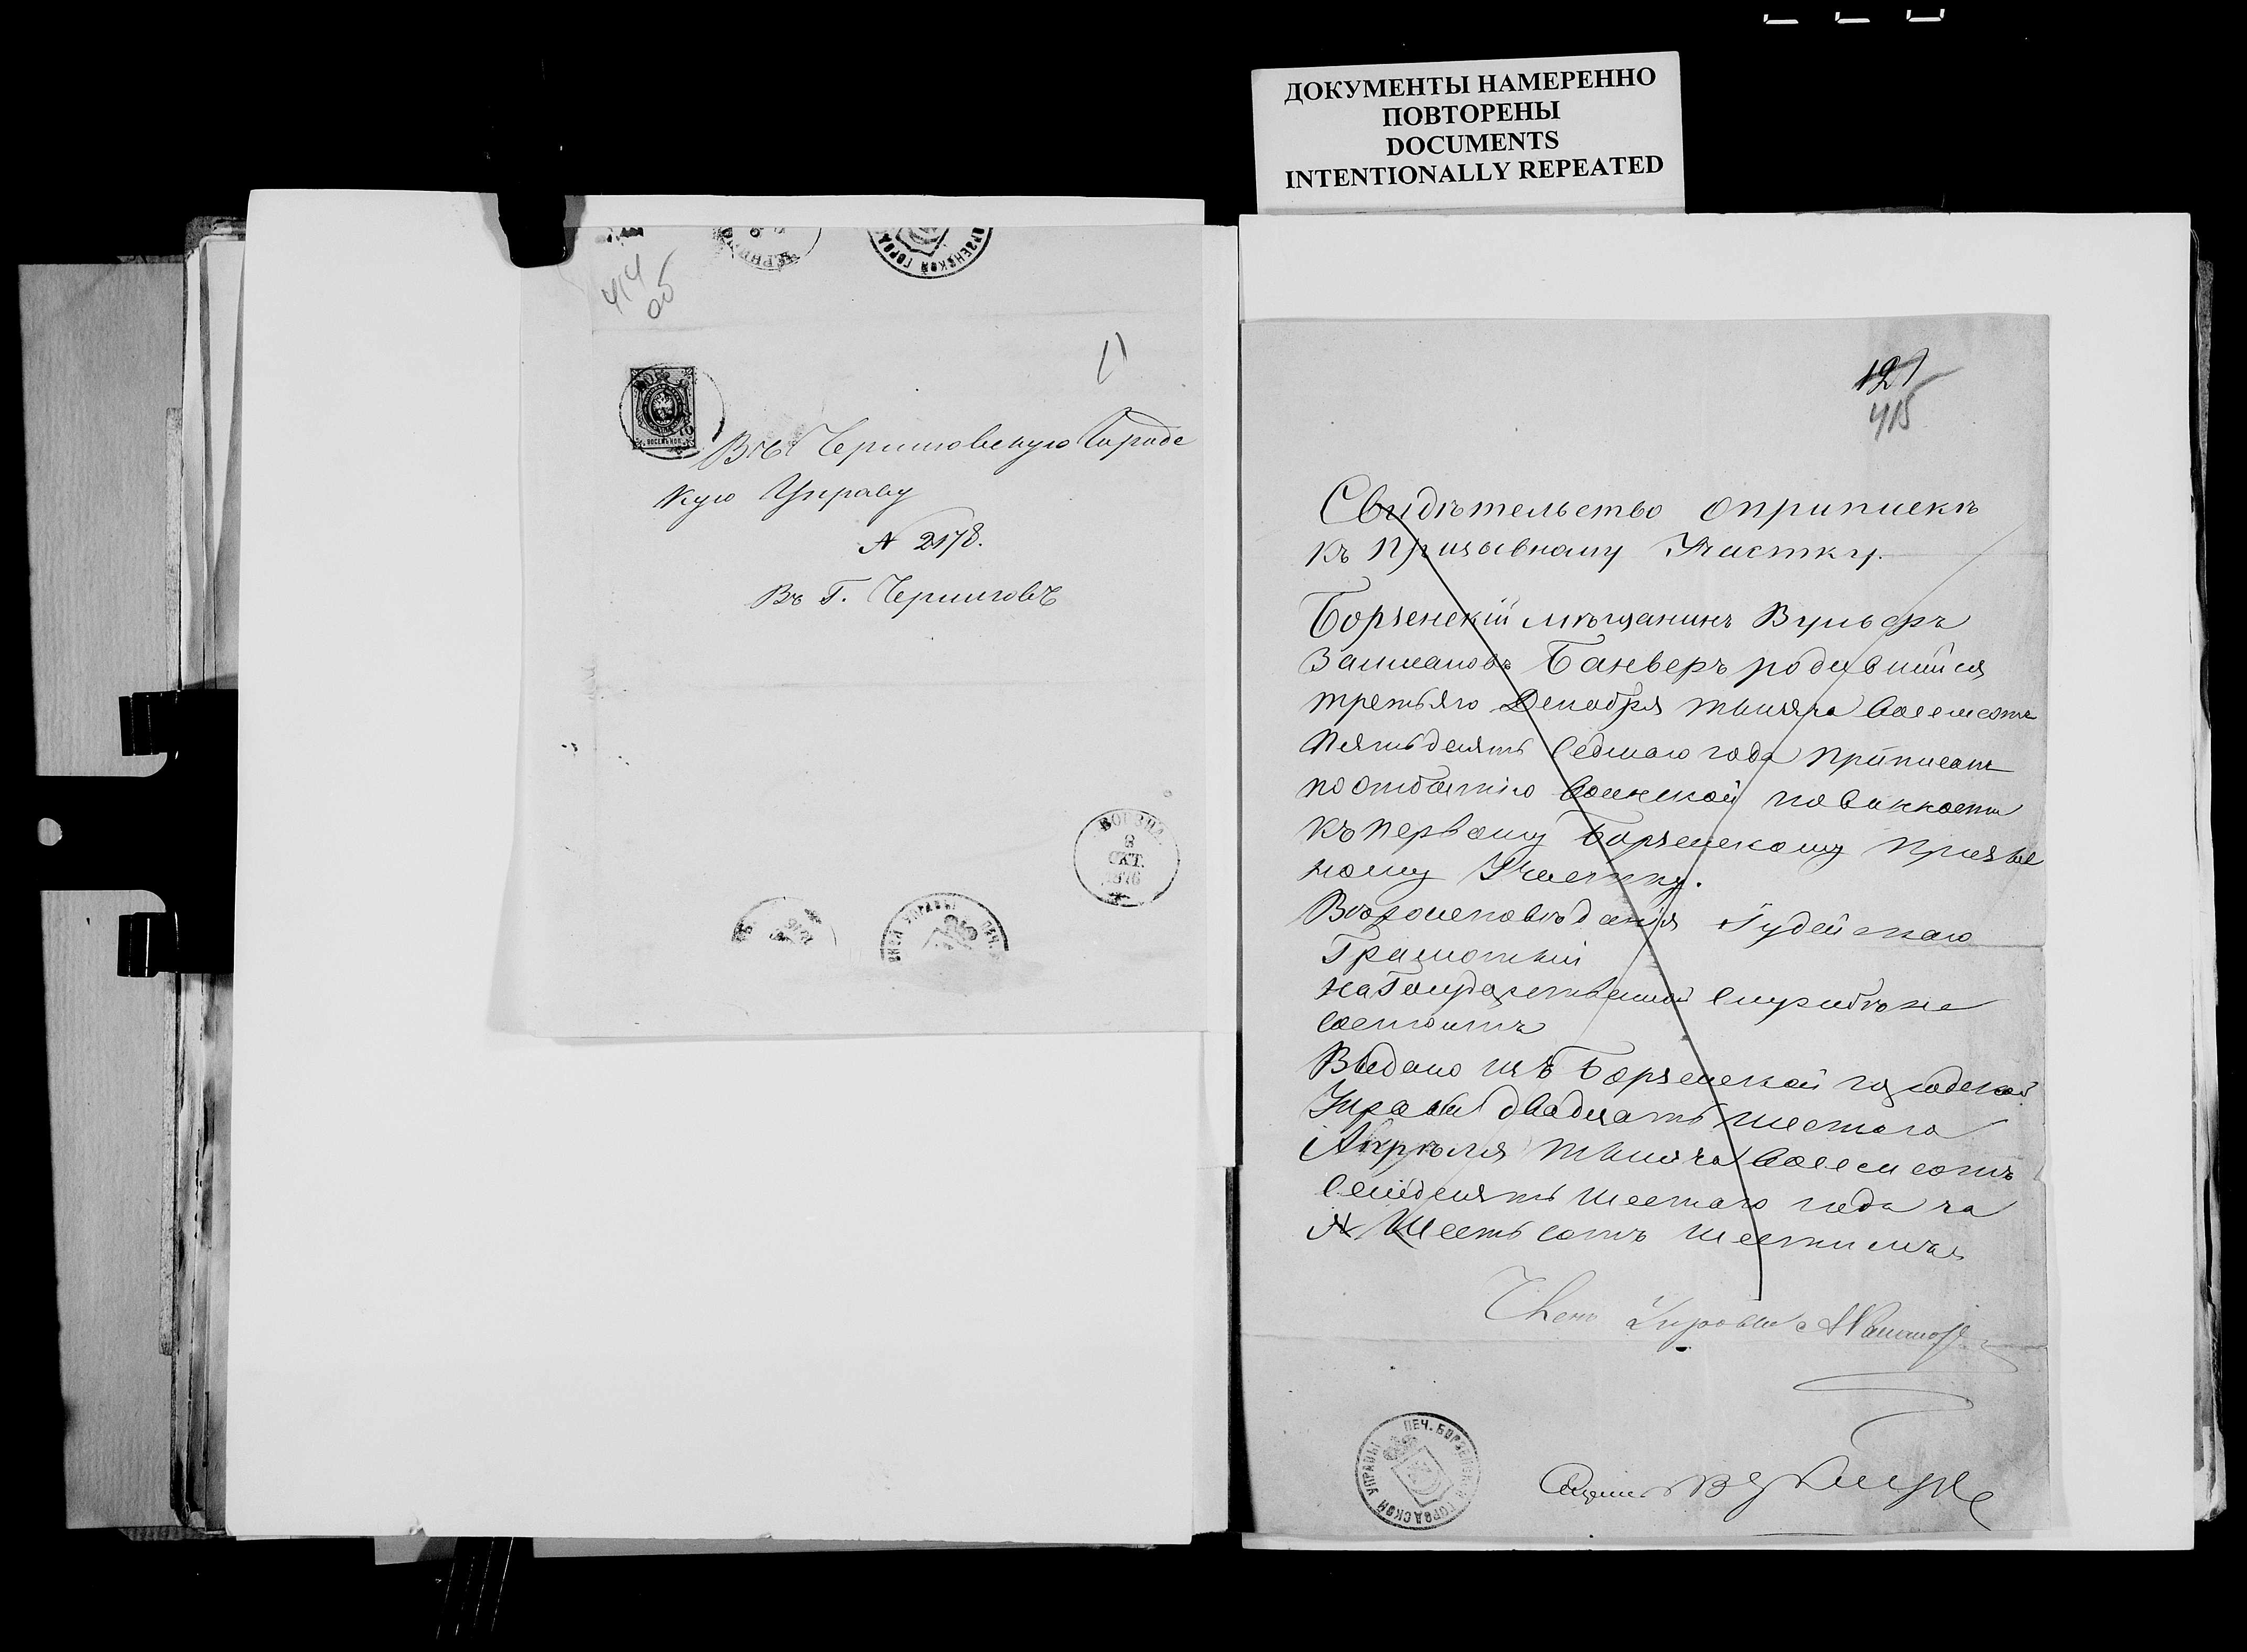 ДОКУМЕНТЫ НАМЕРЕННО
ПОВТОРЕНЫ
DOCUMENTS
INTENTIONALLY REPEATED
414
об
Въ Черниговскую Городс
кую Управу
№ 2178.
Въ Г. Черниговѣ
8
ОКТ.
1876
121
415
Свидѣтельство о припискѣ
къ призывному Участку.
Борзенскій мѣщанинъ Вульфъ
Залмановъ родившійся
третьяго Декабря тысяча восемсотъ
пятьдесятъ седмаго года приписанъ
по отбытію воинской повинности
къ первому Борзенскому призыв
ному Участку.
Вѣроисповѣданія Іудейскаго
Грамотный
на Государственной службѣ не
состоитъ
Выдано изъ Борзенской городской
Управы двадцать шестаго
Апрѣля тысяча восемсотъ
семдесятъ шестаго года за
№ Шестьсотъ
Членъ Управы
ПЕЧ. БОРЗЕНСКОЙ ГОРОДСКОЙ УПРАВЫ